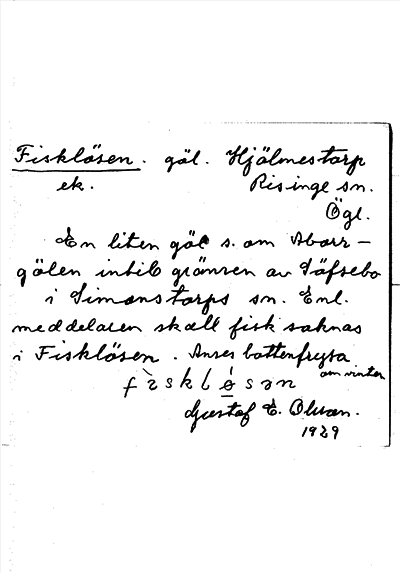 Fisklösen. göl. Hjälmestorp
ek. Risinge sn.
Ögl.
En liten göl s. om Aborr-
gölen intill gränsen av Säfsebo
i Simonstorps sn. Enl.
meddelaren skall fisk saknas
i Fisklösen. Anses bottenfrysa
om vintern
fìsklø̀sən
Gustaf E. Olsson.
1929